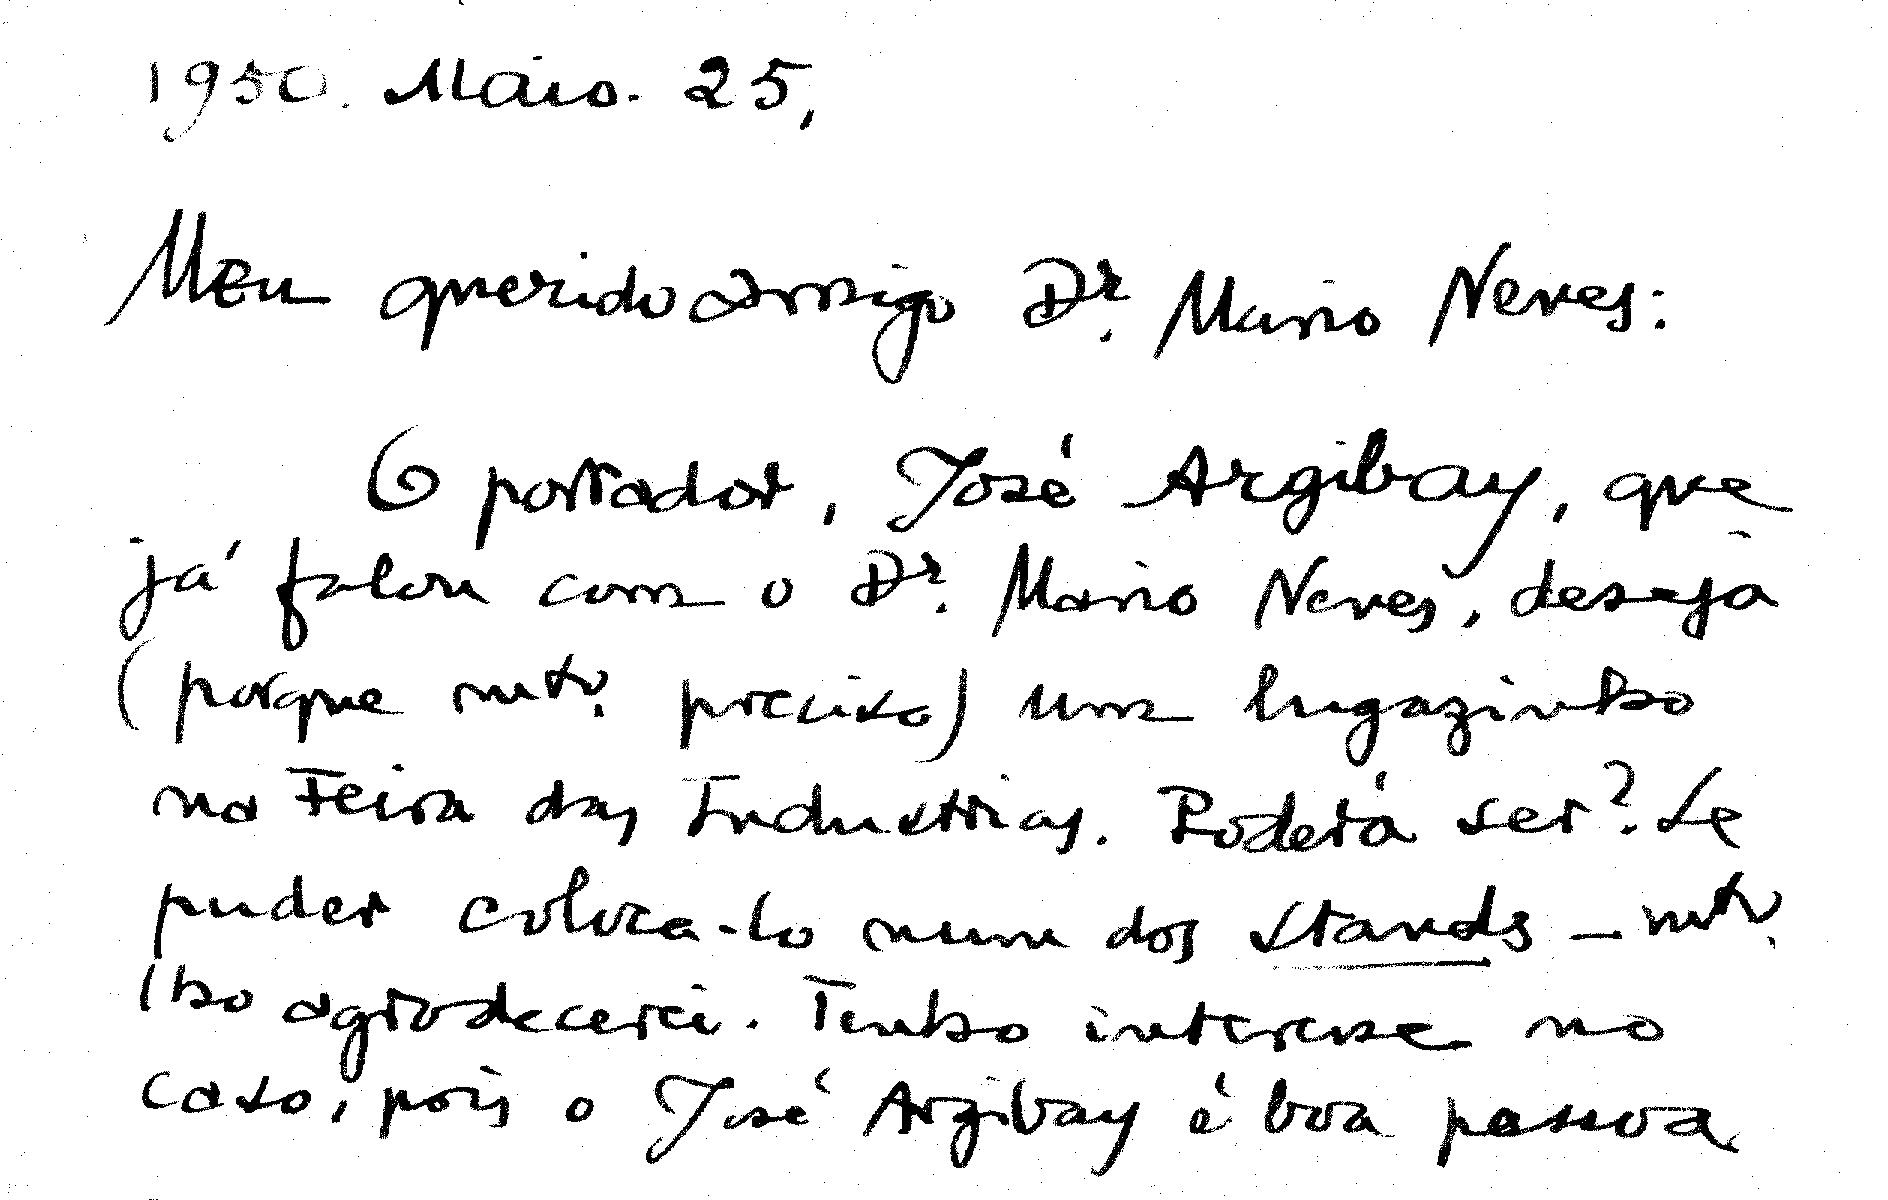 1950. Maio. 25,
Meu querido amigo Dr. Mario Neves:
O portador, José Argibay, que
já falou com o Dr. Mario Neves, deseja
(porque mto. precisa) um lugazinho
na Feira das Industrias. Poderá ser? Se
puder coloca-lo num dos stands – mto.
lho agradecerei. Tenho interesse no
caso, pois o José Argibay é boa pessoa